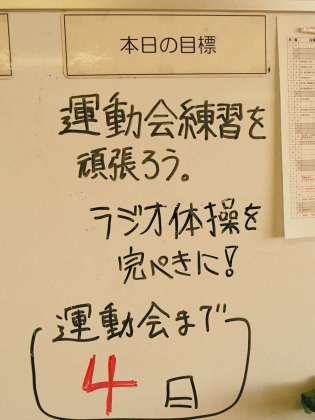 本日の目標
運動会練習を
頑張ろう。
ラジオ体操を
完ぺきに!
運動会まで
4日